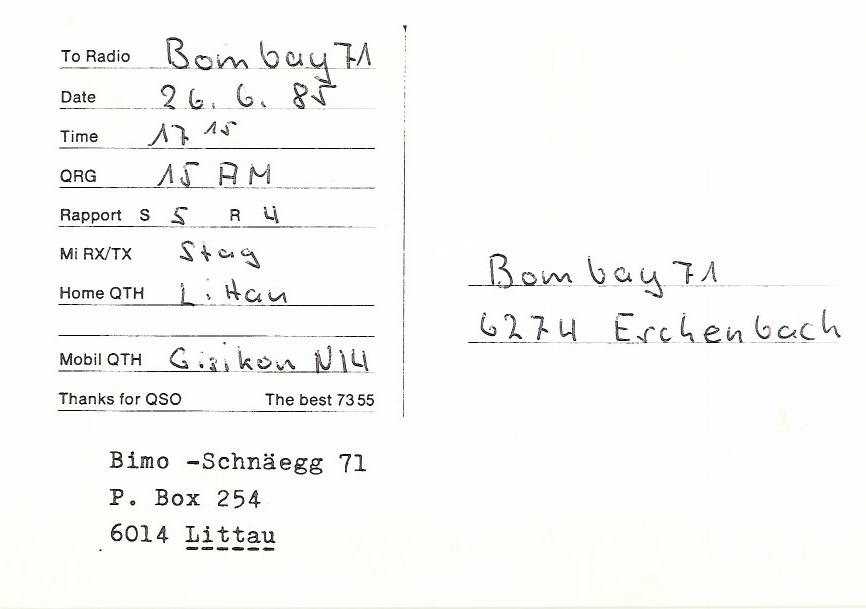 To Radio Bombay 71
Date 26. 6. 85
Time 17 15
QRG 15 AM
Rapport S 5 R 4
Mi RX/TX Stag
Home QTH Littau
Mobil QTH Gisikon N14
Thanks for QSO The best 73 55
Bimo -Schnäegg 71
P. Box 254
6014 Littau
Bombay 71
6274 Eschenbach